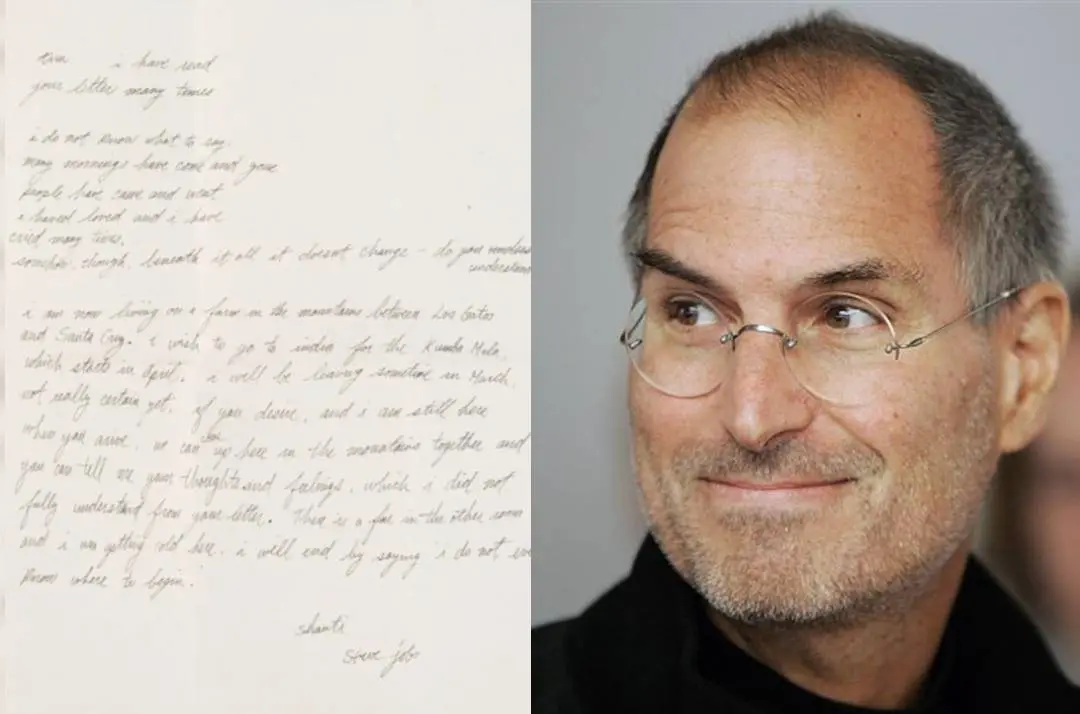 tim i have read
your letter many times
i do not know what to say.
many mornings have come and gone
people have came and went
i haved loved and i have
cried many times.
somehow, though, beneath it all it doesnt change - do you
understand
i am now living on a farm in the mountains between Los Gatos
and Santa Cruz. i wish to go to india for the Kumba Mela,
which starts in april. i will be leaving sometime in March,
not really certain yet. if you desire, and i am still here
when you arive, we can up here in the mountains together and
you can tell me your thoughts and feelings, which i did not
fully understand from your letter. There is a fire in the other room
and i am getting cold here. i will end by saying i do not
know where to begin.
shanti
steve jobs